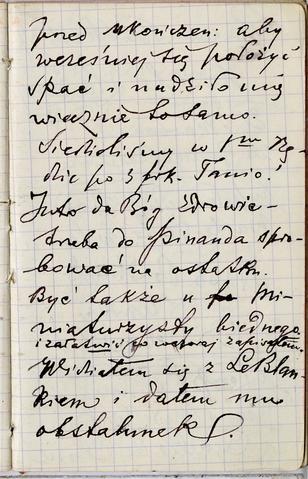 przed ukończen: aby
wcześniej się położyć
spać i nudziło mię
wiecznie to samo.
Siedzieliśmy w I-ym Rzę-
dzie po 3 frk. Tanio!
Jutro da Bóg zdrowie-
trzeba do Pinanda spró-
bować na ostatku.
Być także u mi-
niaturzysty biednego
i załatwić go
Widziałem się z LeBlan-
kiem i dałem mu
obstalunek.